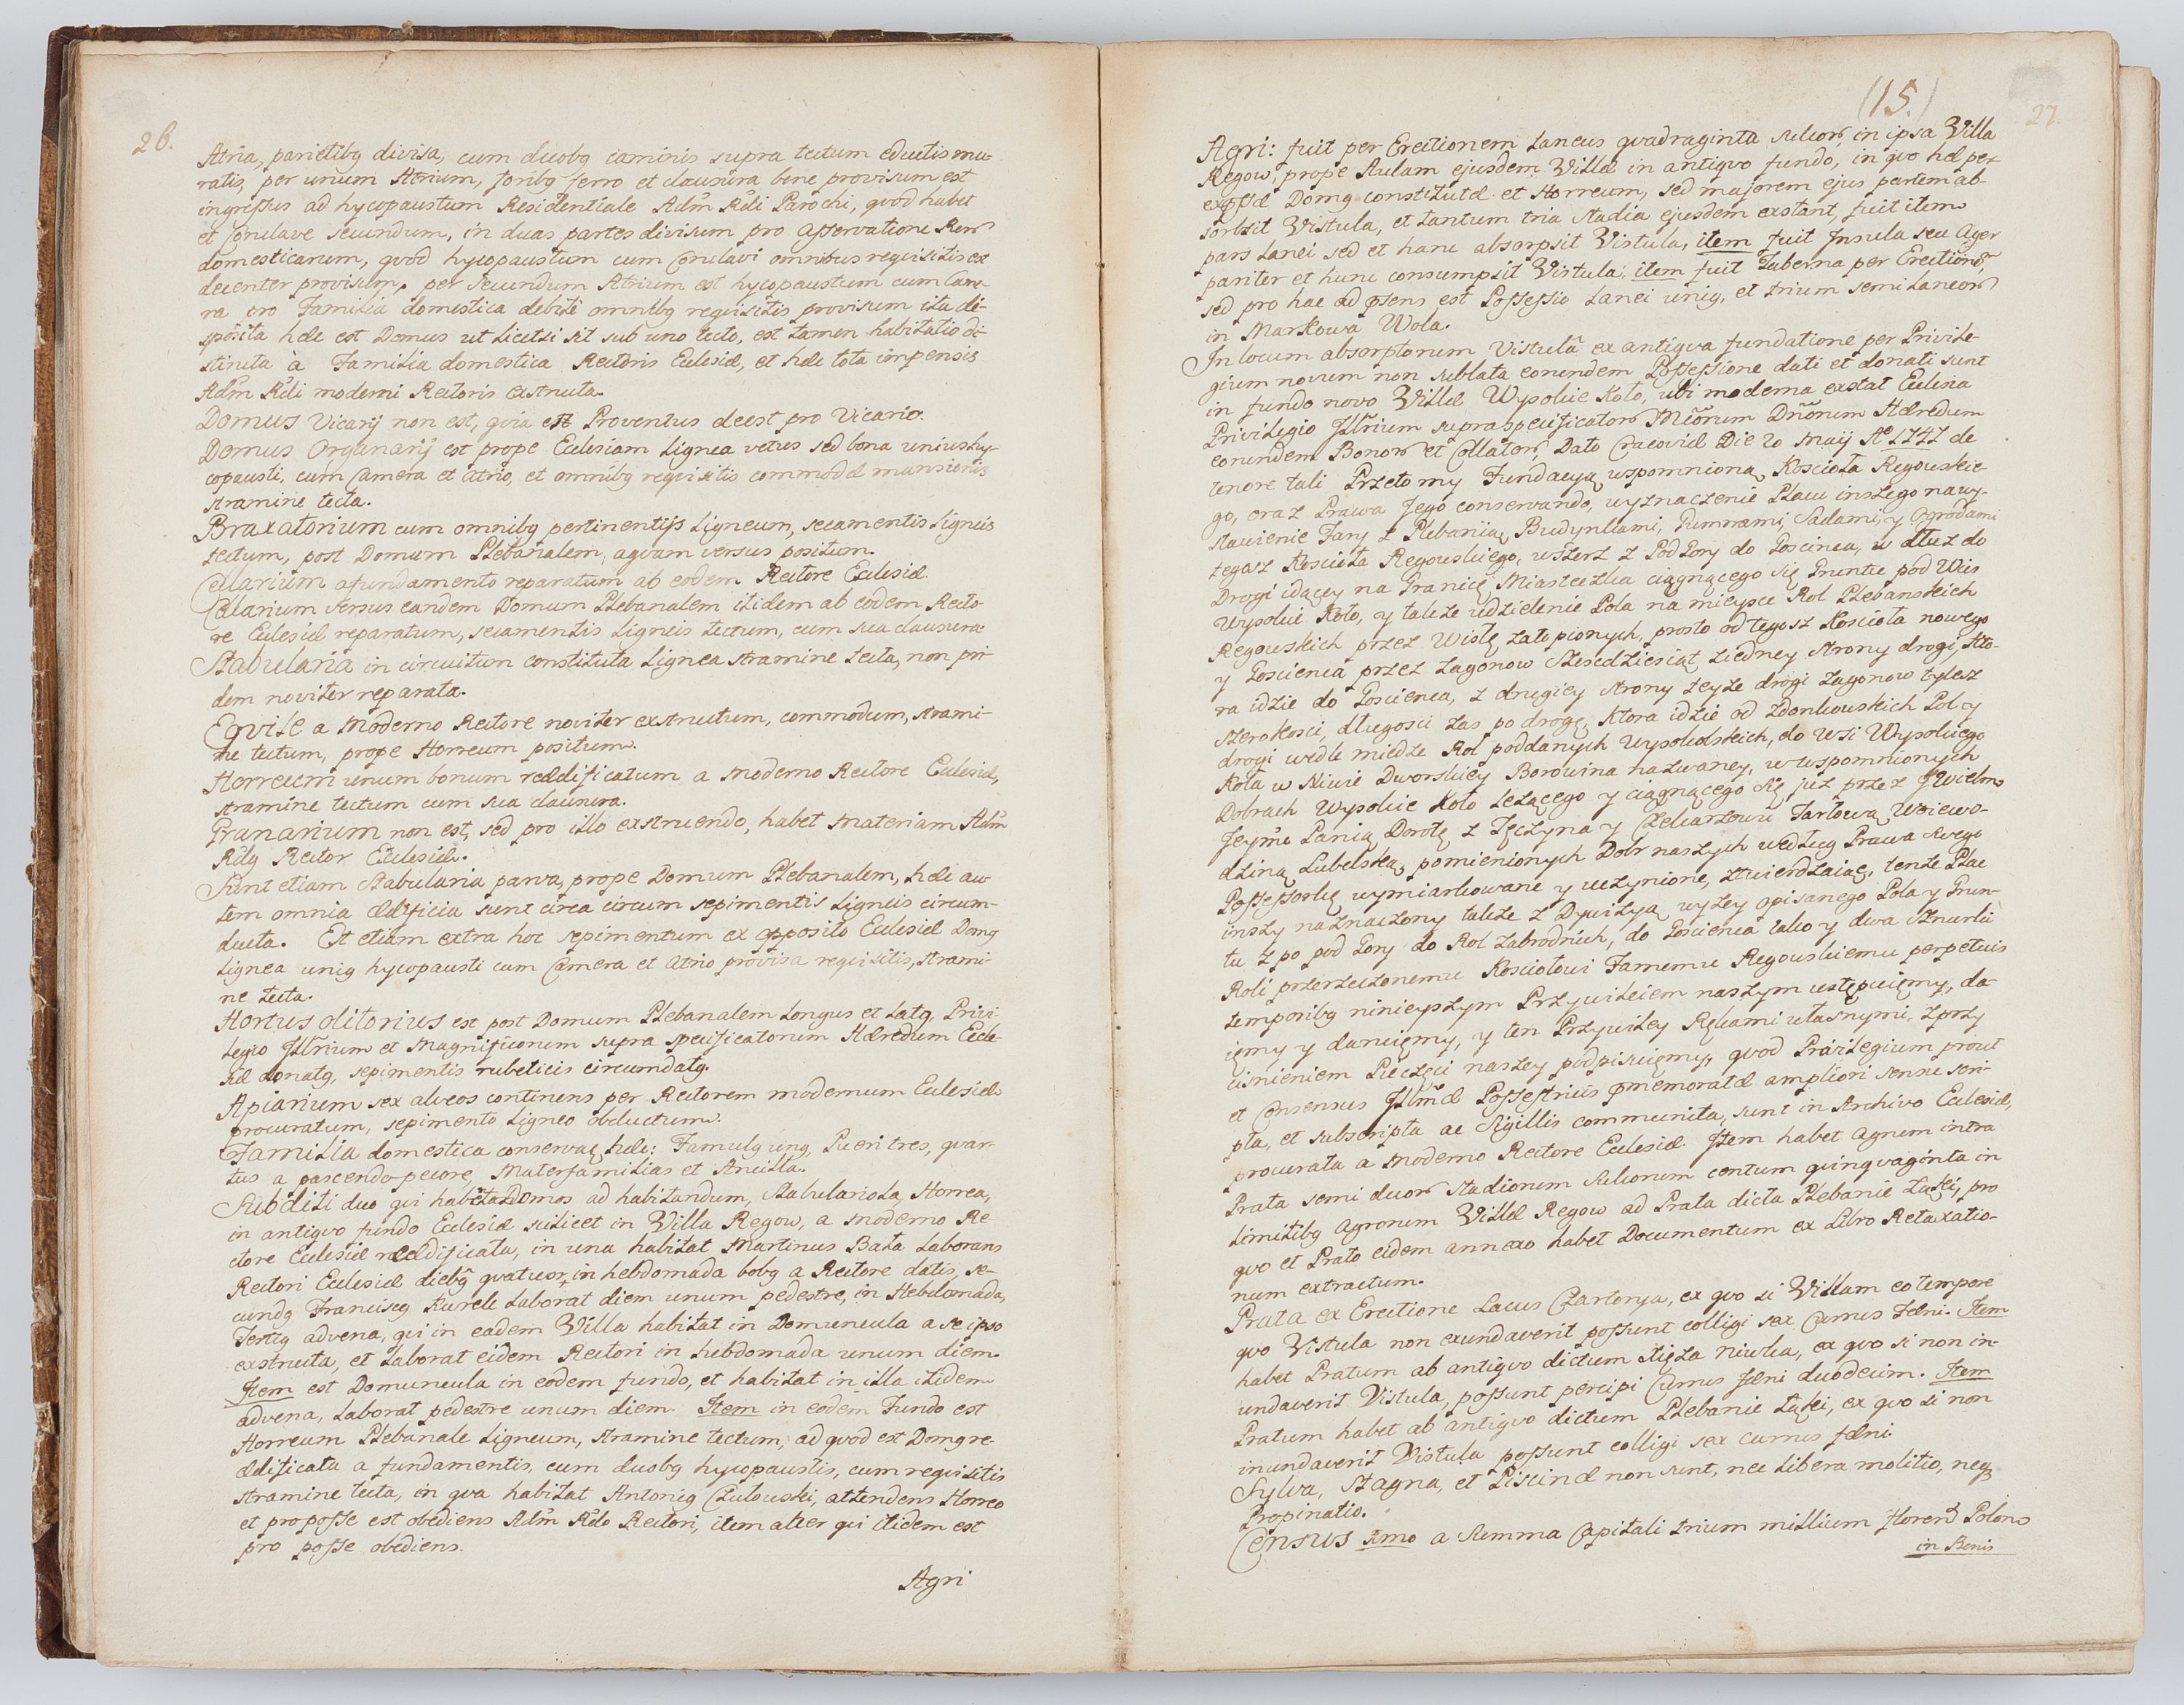 26.
Atria, parietibq divisa, cum duobq caminis supra tectum eductis mu-
ratis, per unum Atrium, foribq ferro et clausura bene provisum est
ingressus ad hypocaustum Residentiale Adm Rdi Parochi, qvod habet
et Conclave secundum, in duas partes divisum pro asservatione Rerum
domesticarum, qvod hypocaustum cum Conclavi omnibus reqvisitis ex
decenter provisum, per secundum Atrium est hycopaustum cum Came-
ra pro Familia domestica debite omnibq reqvisitis provisum ita di-
sposita hæc est Domus ut licet si sit sub uno tecto, est tamen habitatio di-
stincta à Familia domestica Rectoris Ecclesiæ, et hæc tota impensis
Adm Rdi moderni Rectoris exstructa.
Domus Vicarij non est, qvia et Proventus deest pro Vicario.
Domus Organarij est prope Ecclesiam Lignea vetus sed bona unius hy-
copausti, cum Camera et Atrio, et omnibq reqvisitis commodæ mansionis
stramine tecta.
Braxatorium cum omnibq pertinentijs Ligneum, secamentis Ligneis
tectum, post Domum Plebanalem, aqvam versus positum.
Cellarium a fundamento reparatum ab eodem Rectore Ecclesiæ.
Cellarium versus eandem Domum Plebanalem itidem ab eodem Recto-
re Ecclesiæ reparatum, secamentis Ligneis tectum, cum sua clausura.
Stabularia in circuitum constituta Lignea stramine tecta, non pri-
dem noviter reparata.
Eqvile a Moderno Rectore noviter exstructum, commodum, strami-
ne tectum, prope Horreum positum.
Horreum unum bonum reædificatum a Moderno Rectore Ecclesiæ,
stramine tectum cum sua clausura.
Granarium non est, sed pro illo exstruendo, habet Materiam Adm
Rdq Rector Ecclesiæ.
Sunt etiam Stabularia parva, prope Domum Plebanalem, hæc au-
tem omnia ædificia sunt circa circum sepimentis Ligneis circum-
ducta. Est etiam extra hoc sepimentum ex opposito Ecclesiæ Domq
Lignea uniq hycopausti cum Camera et Atrio provisa reqvisitis, strami-
ne tecta.
Hortus olitorius est post Domum Plebanalem Longus et Latq, Privi-
legio Jllrium et Magnificorum supra specificatorum Hæredum Eccle-
siæ donatq, sepimentis rubeticis circumdatq.
Apiarium sex alveos continens per Rectorem modernum Ecclesiæ
procuratum, sepimento Ligneo obductum.
Familia domestica conservaq hæc: Famulq unq, Pueri tres, qvar-
tus a pascendo pecore, Materfamilias et Ancilla.
Subditi duo qvi habent Domos ad habitandum, Stabularia, Horrea,
in antiqvo fundo Ecclesiæ scilicet in Villa Regow, a Moderno Re-
ctore Ecclesiæ reædificata, in una habitat Martinus Bata Laborans
Rectori Ecclesiæ diebq qvatuor in hebdomada bobq a Rectore datis, se-
cundq Franciscq Kurek Laborat diem unum pedestre, in Hebdomada,
Tertiq advena, qvi in eadem Villa habitat in Domuncula a se ipso
exstructa, et Laborat eidem Rectori in hebdomada unum diem.
Item est Domuncula in eodem fundo, et habitat in illa itidem
advena, Laborat pedestre unum diem. Item in eodem Fundo est
Horreum Plebanale Ligneum, stramine tectum, ad qvod est Domq re-
ædificata a fundamentis, cum duobq hycopaustis, cum reqvisitis
stramine tecta, in qva habitat Antoniq Chutowski, attendens Horreo
et pro posse est obediens Adm Rdo Rectori, item alter qvi itidem est
pro posse obediens.
Agri
(15.)
27.
Agri: fuit per Erectionem Laneus qvadraginta sulcor, in ipsa Villa
Regow, prope Aulam ejusdem Villæ in antiqvo fundo, in qvo hæ per
expssæ Domq constitutæ et Horreum, sed majorem ejus partem ab-
sorbsit Vistula, et tantum tria stadia ejusdem exstant, fuit item
pars Lanei sed et hanc absorpsit Vistula, item fuit Jnsula seu Ager
pariter et hunc consumpsit Vistula, item fuit Taberna per Erectione,
sed pro hac ad psens est Possessio Lanei uniq, et trium semilaneorum
in Markowa Wola.
Jn locum absorptorum Vistulâ ex antiqva fundatione per Privile-
gium novum non sublata eorundem Possessione dati et donati sunt
in fundo novo Villæ Wysokie Koło, ubi moderna exstat Ecclesia
Privilegio Jllrium supraspecificator Mcorum Dnorum Hæredum
eorundem Bonor et Collator, Dato Cracoviæ Die 20 Maij Ao 1747 de
tenore tali Przeto my Fundacyą wspomnioną Kościoła Regowskie-
go, oraz Prawa Jego conservando, wyznaczenie Placu inszego na wy-
stawienie Fary z Plebaniią, Budynkami, Gumnami, Sadami, y Ogrodami
tegosz Kościoła Regowskiego, wszerz z Pod Gory do Goscinca, w dłuz do
Drogi idącey na Granicę Miasteczka ciągnącego się Gruntu pod Wsi
Wysokie Koło, y takze udzielenie Pola na mieysce Rol Plebanskich
Regowskich przez Wisłę zatopionych, prosto od tegosz Kościoła nowego
y Goscienca przez zagonow szescdziesiąt z iedney strony drogi, kto-
ra idzie do Goscienca, z drugiey strony teyze drogi zagonow tylesz
szerokosci, długosci zas po drogę, ktora idzie od Zdonkowskich Pol y
drogi wedle miedze Rol poddanych Wysokolskich, do Wsi Wysokiego
Koła w Niwie Dworskiey Borowina nazwaney, w wspomnionych
Dobrach Wysokie Koło Lezącego y ciągnącego się juz przez JWielm
Jeymc Panią Dorotę z Tęczyna y Czekarzowic Tarłową Woiewo-
dziną Lubelską, pomienionych Dobr naszych według Prawa swego
Possessorkę wymiarkowane y uczynione, ztwierdzaiąc, tenze Plac
inszy naznaczony takze z Dywizyą wyzey opisanego Pola y Grun-
tu z po pod Gory do Rol Zabrodnich, do Goscienca iako y dwa Sznurki
Roli przerzeczonemu Kosciołowi Farnemu Regowskiemu perpetuis
temporibq ninieyszym Przywileiem naszym ustępuięmy, da-
ięmy y daruięmy, y ten Przywiley Rękami własnymi, z przy
ciśnieniem Pieczęci naszey podpisuięmy, qvod Privilegium prout
et Consensus Jllmæ Possestricis pmemoratæ ampliori sensu scri-
pta, et subscripta ac Sigillis communita, sunt in Archivo Ecclesiæ,
procurata a Moderno Rectore Ecclesiæ. Jtem habet Agrum intra
Prata semi duor Stadiorum Sulcorum centum qvinqvaginta in
Limitibq Agrorum Villæ Regow ad Prata dicta Plebanie Łąki, pro
qvo et Prato eidem annexo habet Documentum ex Libro Retaxatio-
num extractum.
Prata ex Erectione Lacus Czartorya, ex qvo si Villam eo tempore
qvo Vistula non exundaverit possunt colligi sex Currus Fæni. Item
habet Pratum ab antiqvo dictum Xięza Niwka, ex qvo si non in-
undaverit Vistula, possunt percipi Currus fæni duodecim. Item
Pratum habet ab antiqvo dictum Plebanie Łąki, ex qvo si non
inundaverit Vistula possunt colligi sex currus fæni.
Sylva, Stagna, et Piscinæ non sunt, nec Libera molitio, neq
Propinatio.
Census 1mo a Summa Capitali trium millium floren Polon
in Bonis